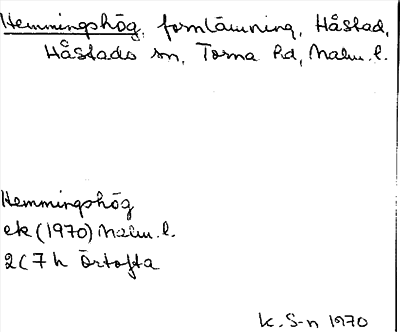 Hemmingshög, fornlämning, Håstad,
Håstads sn, Torna hd, Malm. l.
Hemmingshög
ek (1970) Malm. l.
2C 7 h Örtofta
K. S-n 1970